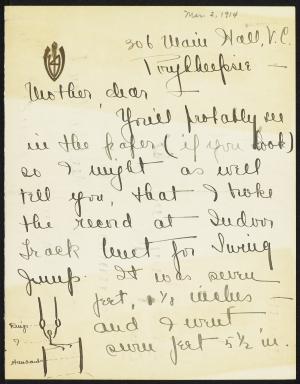 Mar 2, 1914
306 Main Hall, V.C.
Poughkeepsie —
Mother dear,
You'll probably see
in the paper (if you look)
so I might as well
tell you, that I broke
the record at Indoor
Track Meet for Swing
Jump. It was seven
feet, 1⅛ inches —
and I went
seven feet 5½ in.
Rings